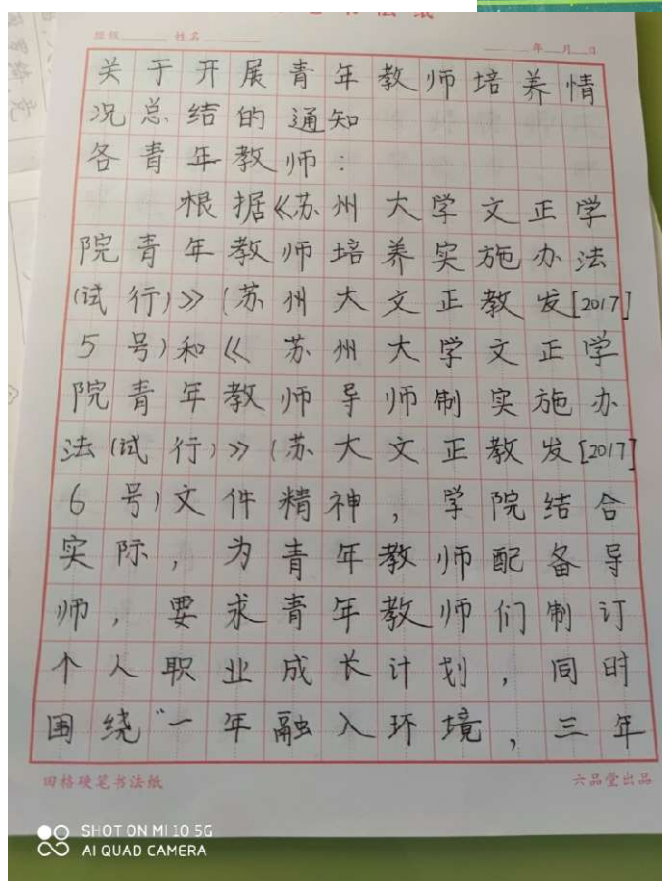 班级 姓名 年 月 日
关于开展青年教师培养情
况总结的通知
各青年教师：
根据《苏州大学文正学
院青年教师培养实施办法
(试行)》(苏州大文正教发[2017]
5号)和《苏州大学文正学
院青年教师导师制实施办
法(试行)》(苏大文正教发[2017]
6号)文件精神，学院结合
实际，为青年教师配备导
师，要求青年教师们制订
个人职业成长计划，同时
围绕“一年融入环境，三年
田格硬笔书法纸 六品堂出品
SHOT ON MI 10 5G
AI QUAD CAMERA